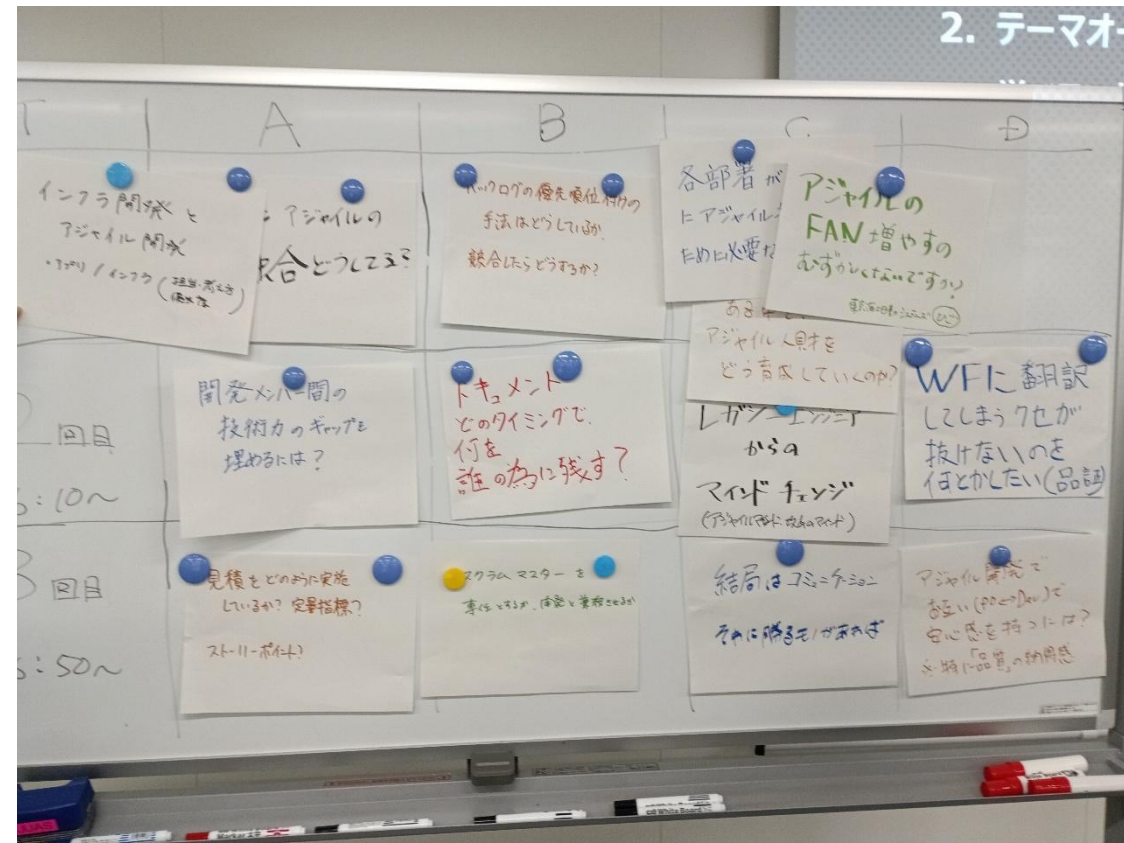 2. テーマオー
T
A
B
C
D
インフラ開発と
アジャイル開発
・アプリ / インフラ (担当・考え方
アジャイルの
合どうしてる?
バックログの優先順位付けの
手法はどうしているか.
競合したらどうするか?
各部署が
にアジャイル
ために必要な
アジャイルの
FAN増やすの
むずかしくないですか?
アジャイル人財を
どう育成していくのか?
回目
5:10~
開発メンバー間の
技術力のギャップを
埋めるには?
ドキュメント
どのタイミングで、
何を
誰の為に残す?
レガシーエンジニア
からの
マインドチェンジ
WFに翻訳
してしまうクセが
抜けないのを
何とかしたい(品証)
3回目
5:50~
見積をどのように実施
しているか? 定量指標?
ストーリーポイント?
スクラムマスターを
専任とするか、開発と兼務させるか
結局はコミュニケーション
それに勝るモノがあれば
アジャイル開発で
お互い(PO⇔Dev)で
安心感を持つには?
※特に「品質」の納得感
JUAS